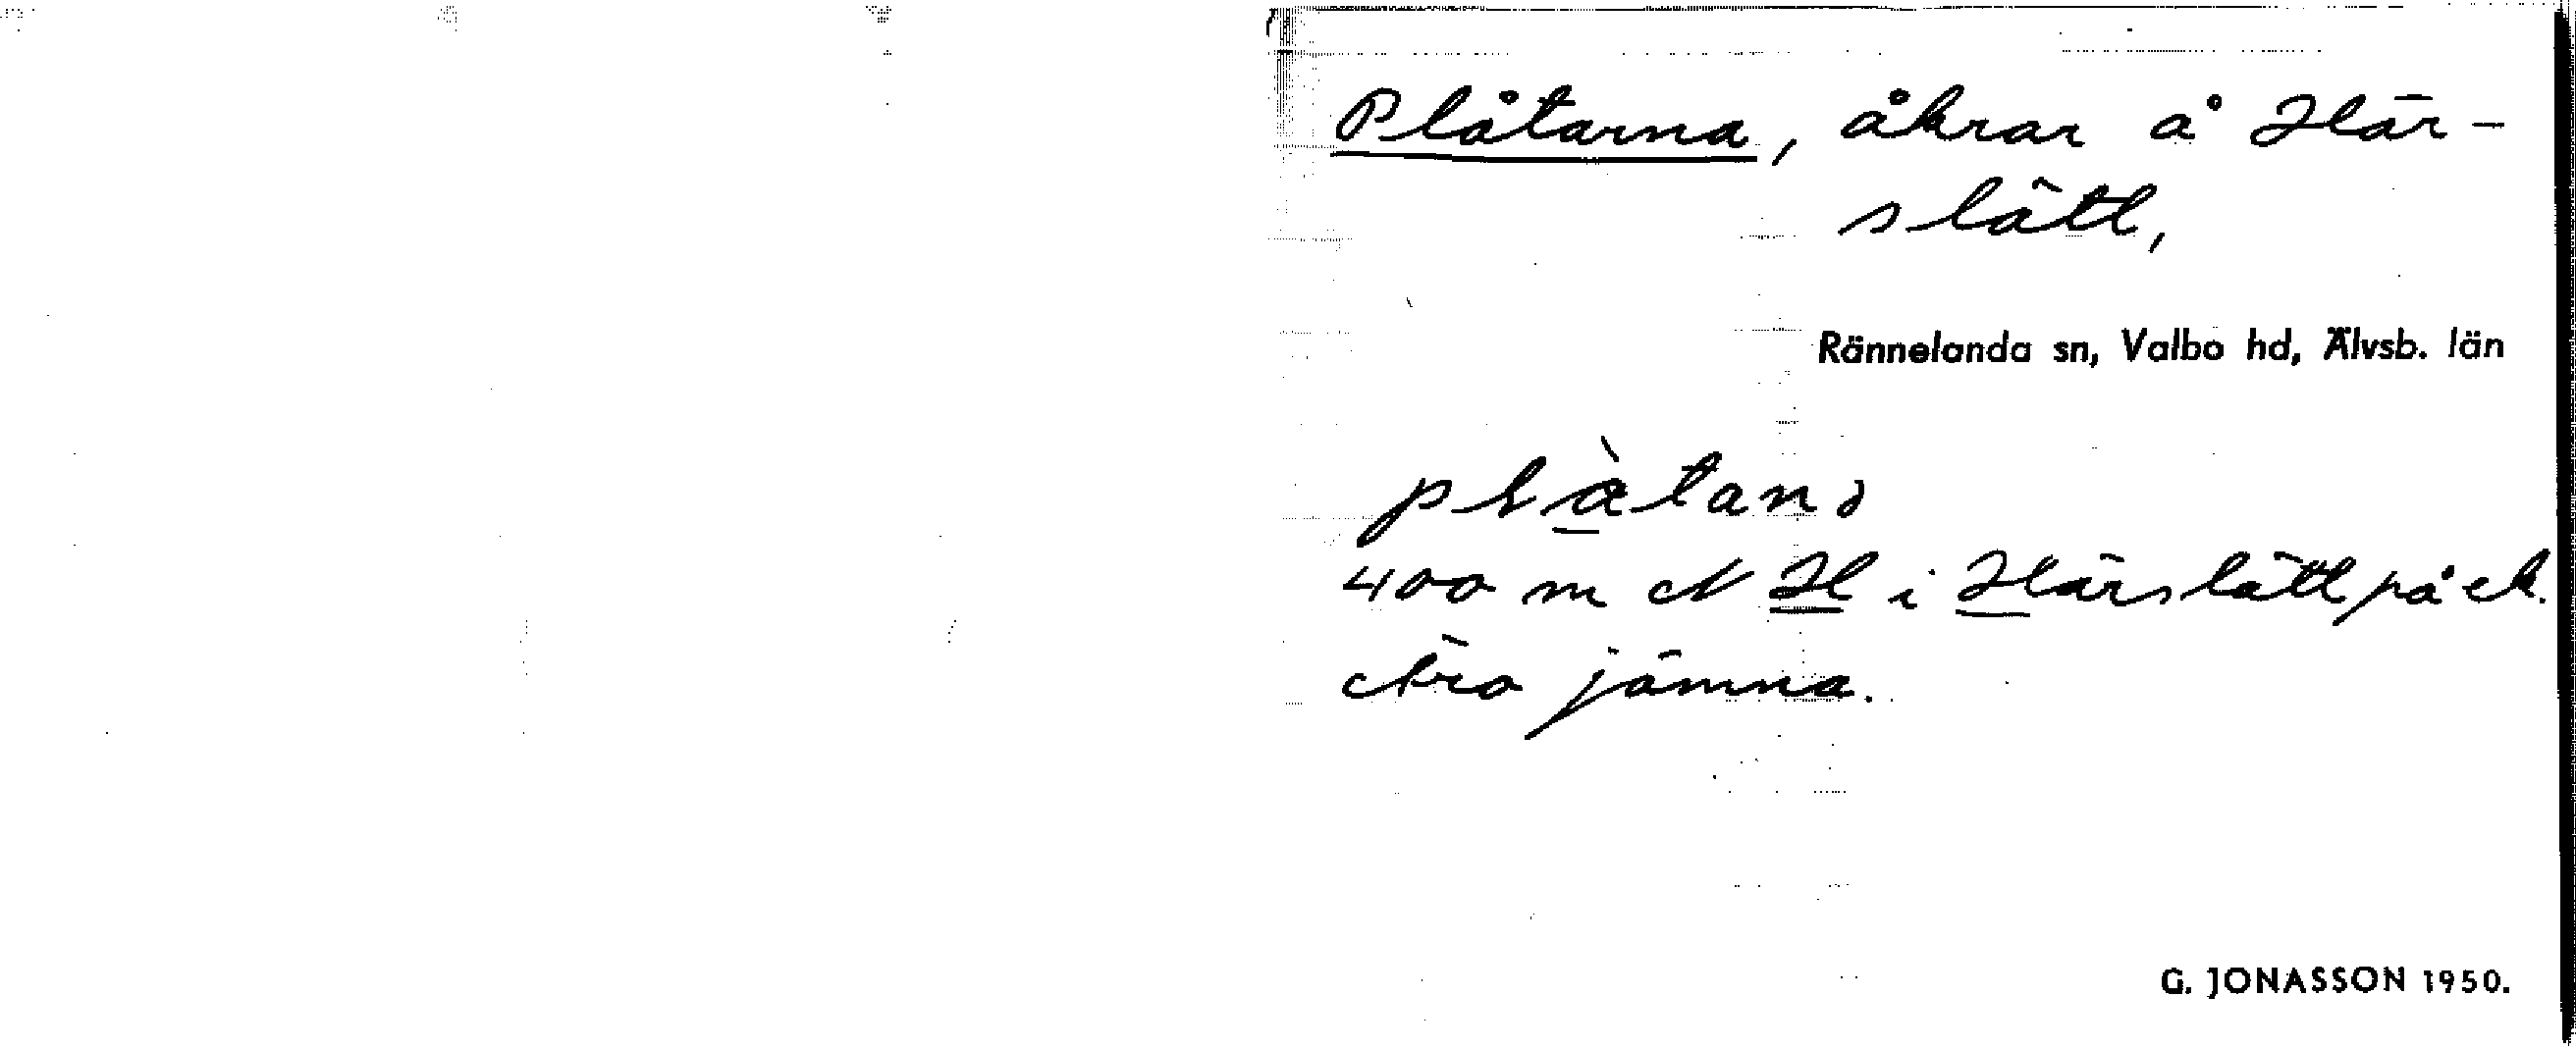 Plåtarna, åkrar å Här-
slätt,
Rännelanda sn, Valbo hd, Älvsb. län
plàtanə
400 m N H i Härslätt på ek.
Äro jämna.
G. JONASSON 1950.